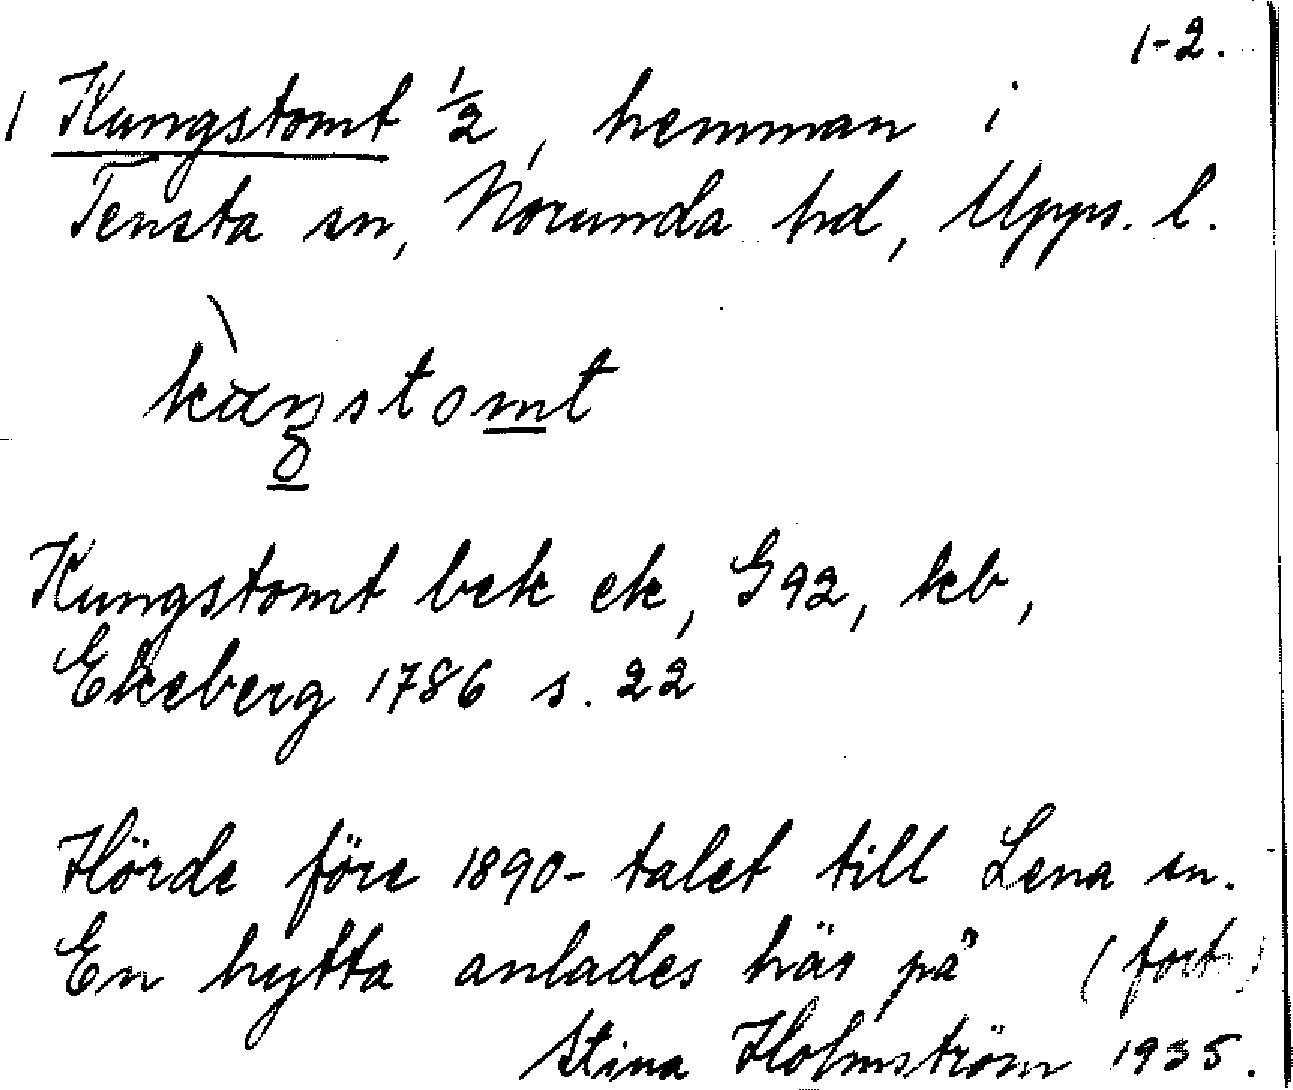 1-2.
1 Kungstomt 1/2, hemman i
Tensta sn, Norunda hd, Upps. l.
Kungstomt bek ek, G92, kb,
Ekeberg 1786 s. 22
Hörde före 1890-talet till Lena sn.
En hytta anlades här på (forts.)
Stina Holmström 1935.